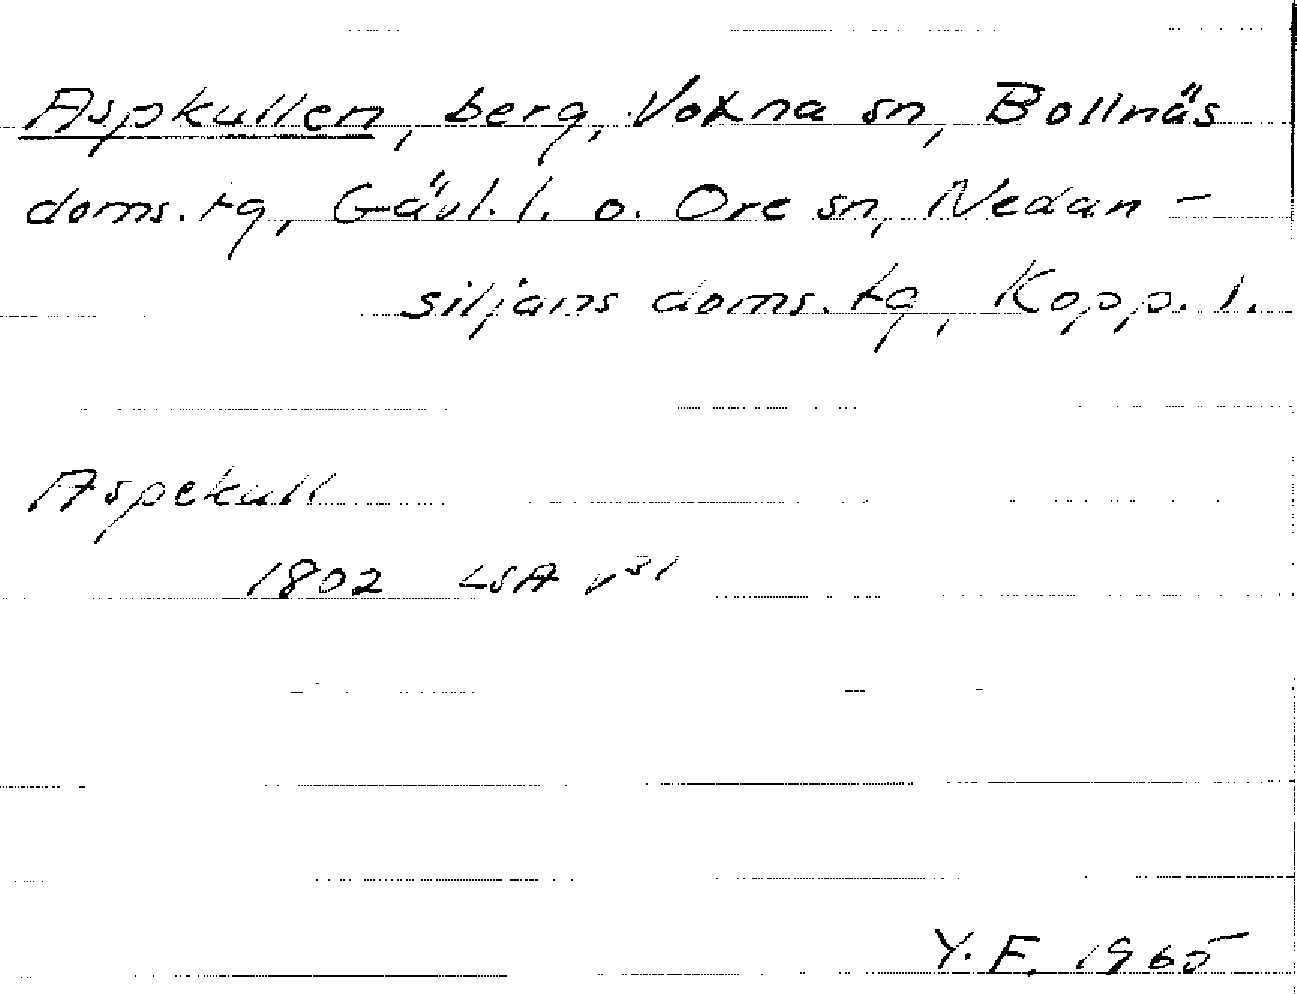 Aspkullen, berg, Voxna sn, Bollnäs
doms.tg, Gävl.l. o. Ore sn, Nedan-
siljans doms.tg, Kopp.l.
Aspekull
1802 LSA v31
Y.F. 1965